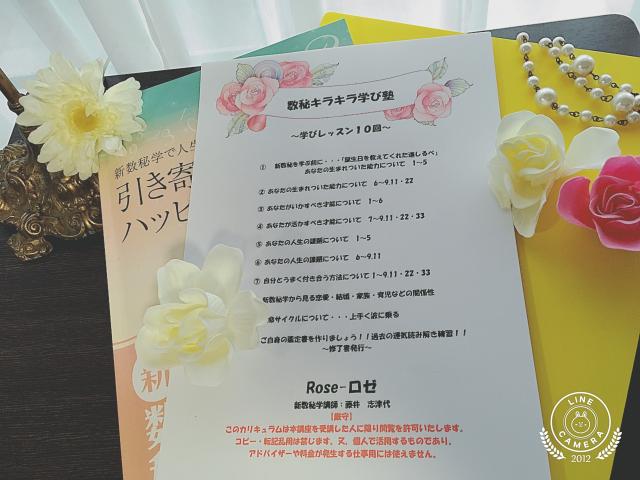 数秘キラキラ学び塾
～学びレッスン１０回～
① 新数秘を学ぶ前に・・・「誕生日を教えてくれた道しるべ」
あなたの生まれついた能力について 1～5
② あなたの生まれついた能力について 6～9.11・22
③ あなたがいかすべき才能について 1～6
④ あなたが活かすべき才能について 7～9.11・22・33
⑤ あなたの人生の課題について 1～5
⑥ あなたの人生の課題について 6～9.11
⑦ 自分とうまく付き合う方法について 1～9.11・22・33
新数秘学から見る恋愛・結婚・家族・育児などの関係性
命サイクルについて・・・上手く波に乗る
ご自身の鑑定書を作りましょう！！過去の運気読み解き練習！！
～修了書発行～
Rose－ロゼ
新数秘学講師：藤井 志津代
【厳守】
このカリキュラムは本講座を受講した人に限り閲覧を許可いたします。
コピー・転記乱用は禁じます。又、個人で活用するものであり、
アドバイザーや料金が発生する仕事用には使えません。
新数秘学で人生
引き寄
ハッピ
新
数
LINE
CAMERA
2012